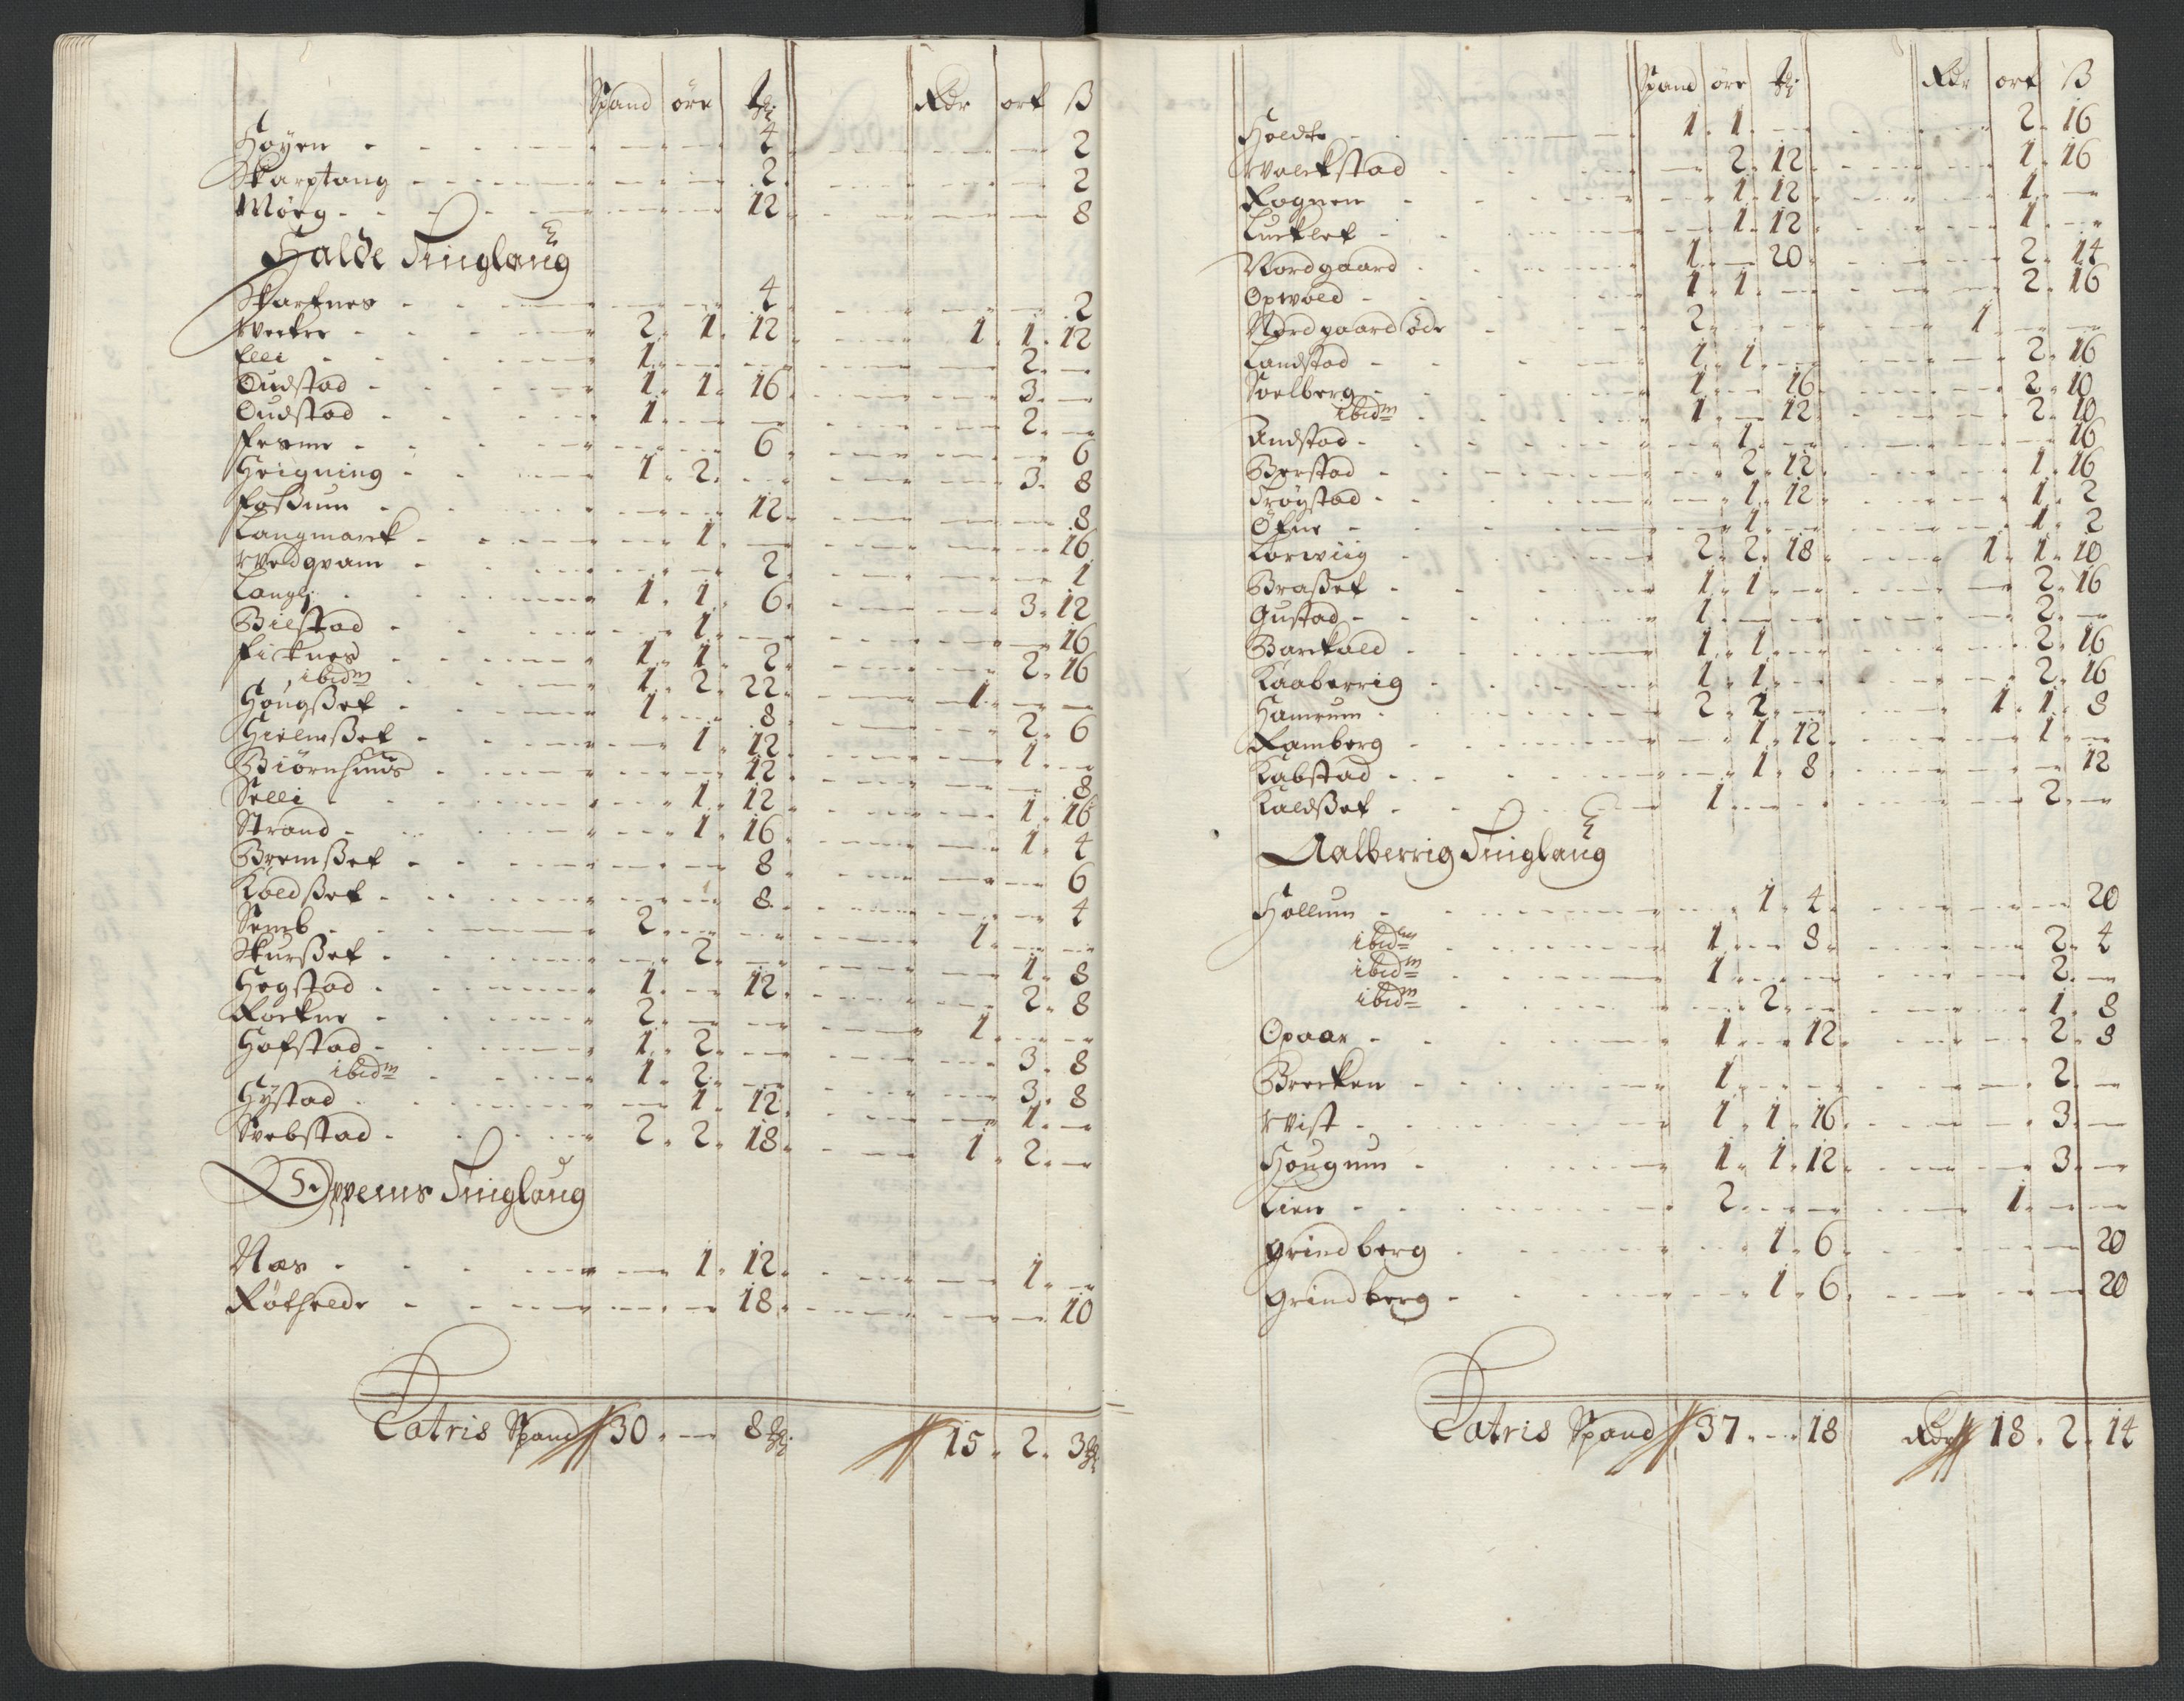 Spand öre Rdr ort ß
Høyen 4 2
Skarptang 2 2
Mörg 12 8
Halde Tinglaug
Skarfnes 4 2
Werker 2. 1. 12 1. 1. 12
Elli 1. 2.
Oudstad 1. 1. 16 3.
Oudstad 1. 2.
Fesme 6 6
Heigning 1. 2. 3. 8
Foßum 12 8
Langmarck 1. 16
Wedqvam 2 1
Langli 1. 1. 6. 3. 12
Bielstad 1. 16
Ficknes 1. 1. 2 2. 16
ibidm 1. 2. 22. 1.
Hougßet 1. 8 2. 6
Hielmßet 1. 12 1.
Biörnhuus 12 8
Selli 1. 12 1. 16
Strand 1. 16 1. 4
Bremßet 8 6
Koldßet 8 4
Semb 2. 1.
Skurßet 2. 1. 8
Hegstad 1. 12 2. 8
Röcker 2. 1.
Hofstad 1. 2. 3. 8
ibidm 1. 2. 3. 8
Hystad 1. 12 1.
Svebstad 2. 2. 18 1. 2.
Oppems Tinglaug
Næs 1. 12 1.
Røthelde 18 10
Latris Spand 30. 8 15. 2. 3
Spand öre Rdr ort ß
Holdte 1. 1. 2. 16
Walekstad 2. 12 1. 16
Rognen 1. 12 1.
Lucklet 1. 12 1.
Nordgaard 1. 20 2. 14
Opwold 1. 1. 2. 16
Nordgaard öde 2. 1.
Landstad 1. 1. 2. 16
Soelberg 1. 16 2. 10
ibidm 1. 12 2. 10
Andstad 1. 16
Berstad 2. 12 1. 16
Trögstad 1. 12 1. 2
Öfne 1. 1. 2
Lorwiig 2. 2. 18 1. 1. 10
Braßet 1. 1. 2. 16
Gustad 1. 2.
Barkald 1. 1. 2. 16
Kaaberrig 1. 1. 2. 16
Hamrum 2. 2. 1. 1. 8
Ramberg 1. 12 1.
Kabstad 1. 8 12
Kaldßet 1. 2.
Aalberrig Tinglaug
Hollum 1. 4 20
ibidm 1. 8 2. 4
ibidm 1. 2.
ibidm 2. 1. 8
Opaar 1. 12 2. 8
Brecken 1. 2.
Wist 1. 1. 16 3.
Hougum 1. 1. 12 3.
Lien 2. 1.
Grindberg 1. 6 20
Grindberg 1. 6. 20
Latris Spand 37. 18 Rdr 18. 2. 14